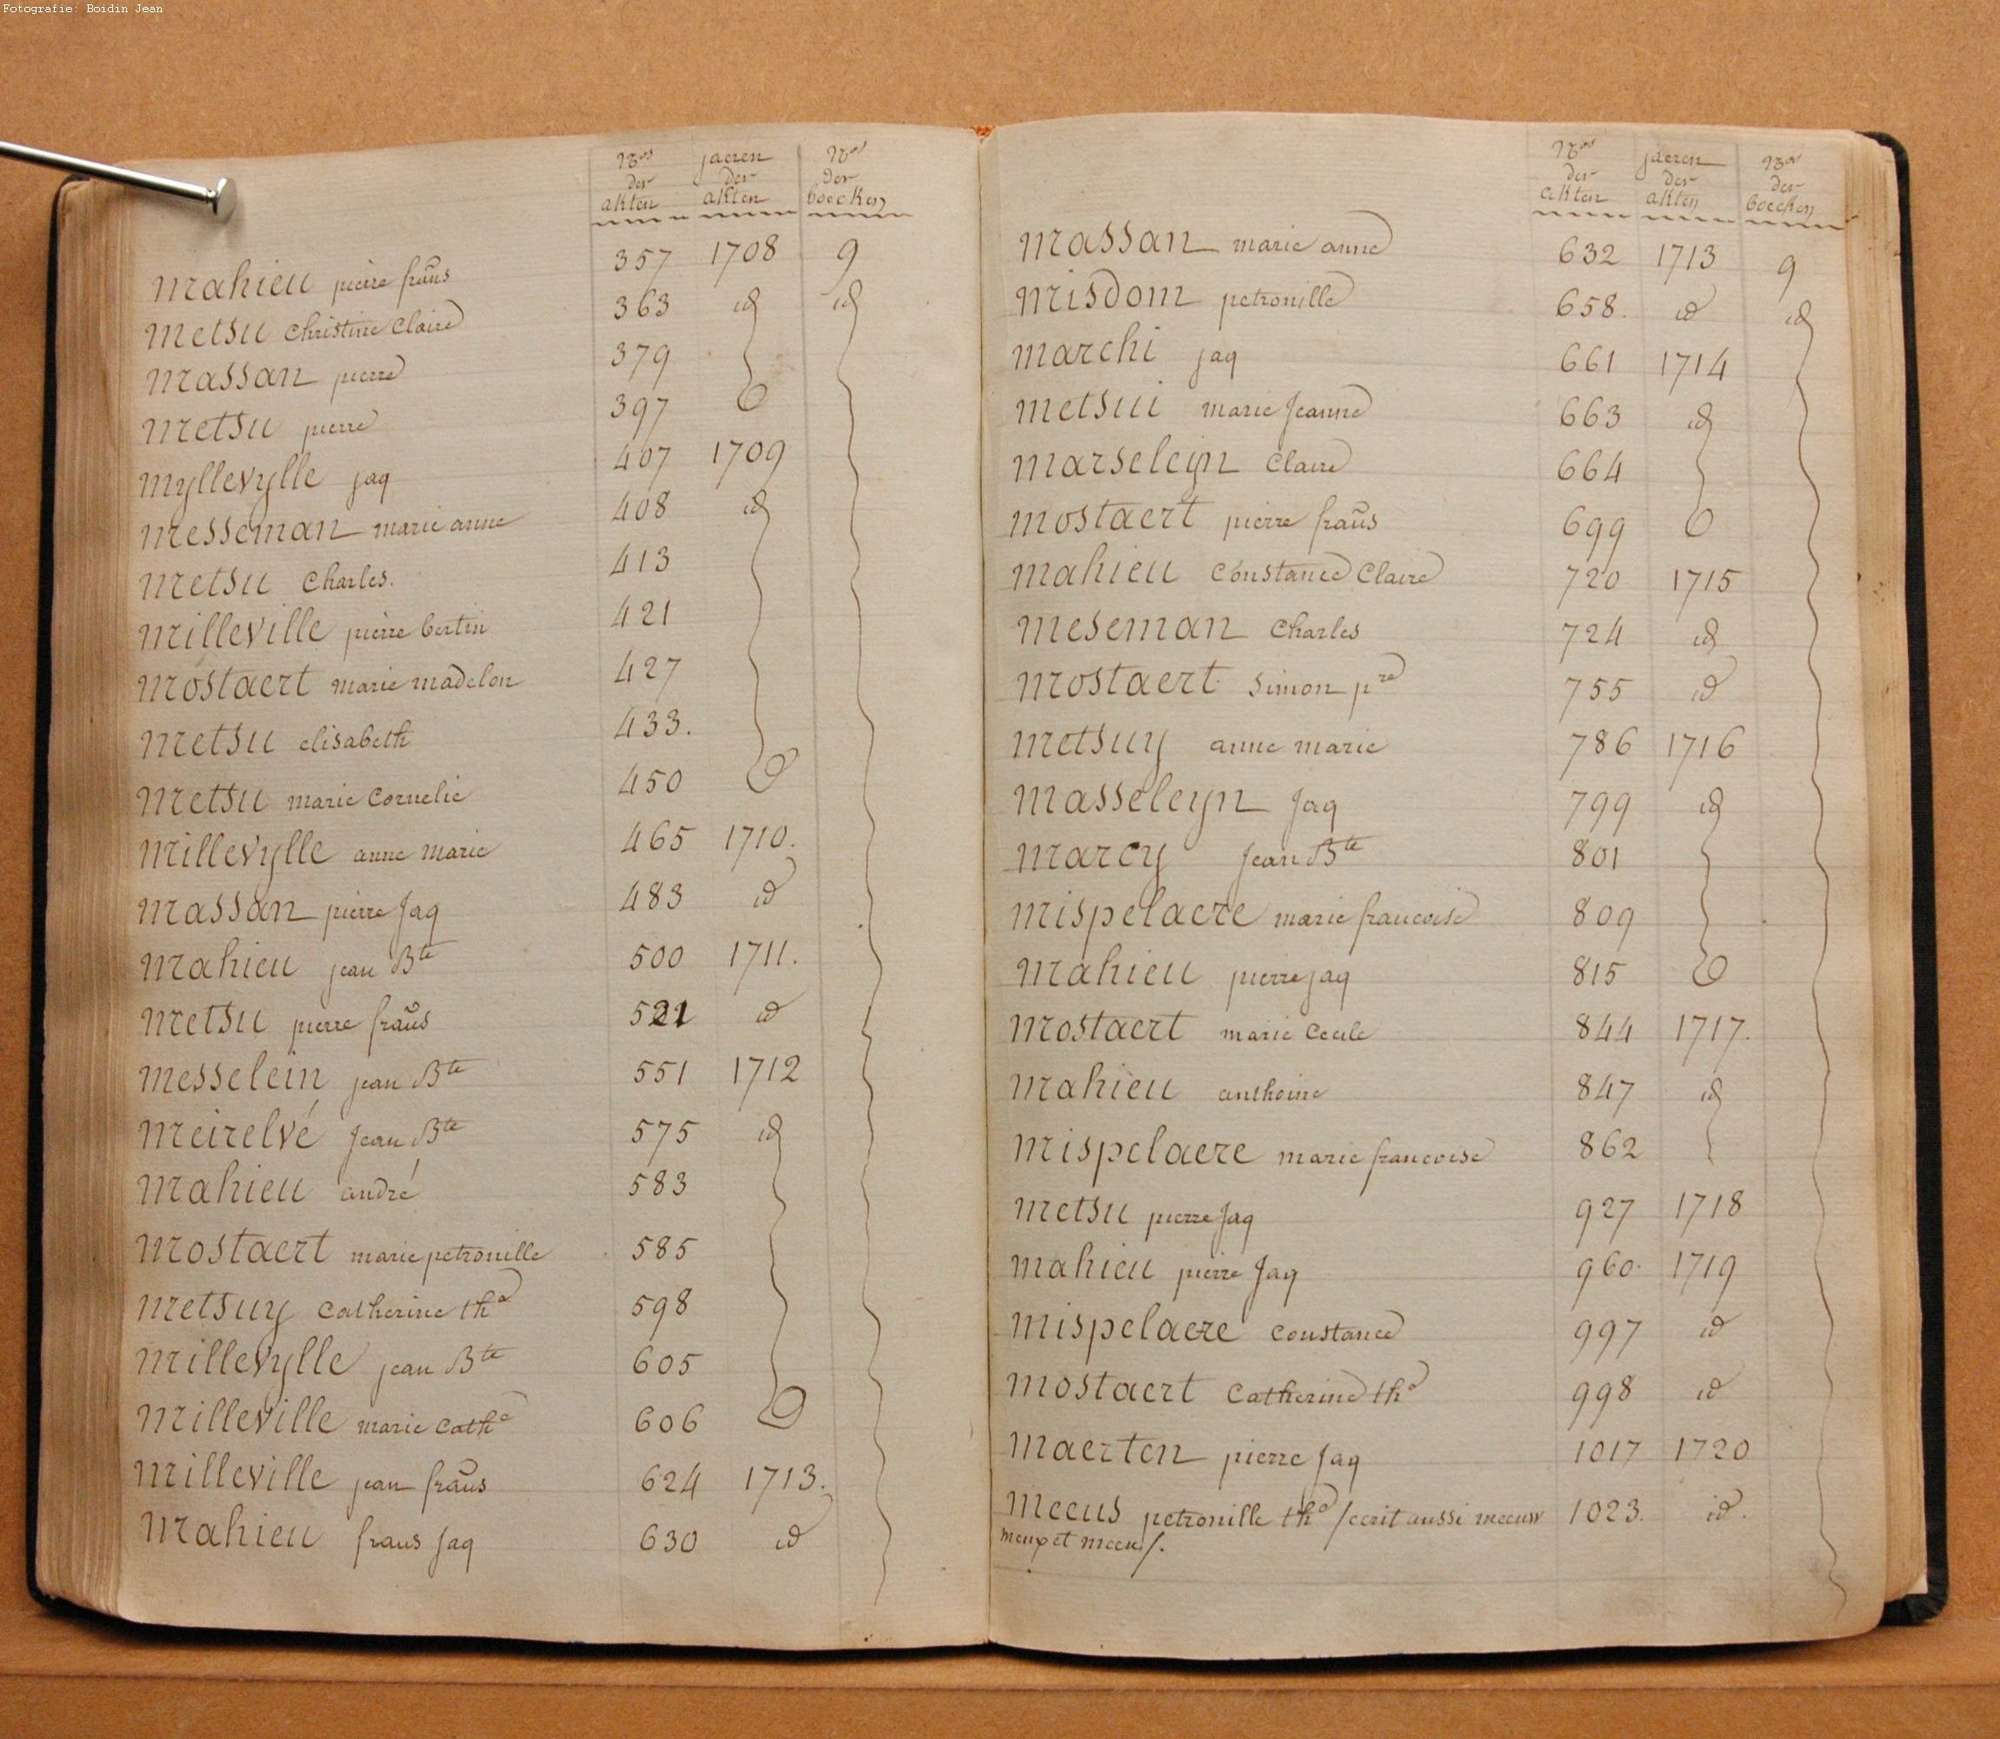 Fotografie: Boidin Jean
Nros jaeren Nros
der der der
akten akten boecken
mahieu pierre frans̃ 357 1708 9
metsu Christine Claire 363 id id
massan pierre 379
metsu pierre 397
myllevylle jaq 407 1709
messeman marie anne 408 id
metsu Charles. 413
milleville pierre bertin 421
mostaert marie madelon 427
metsu elisabeth 433.
metsu marie Cornelie 450
millevylle anne marie 465 1710.
massan pierre Jaq 483 id
mahieu jean Bte 500 1711.
metsu pierre frans̃ 521 id
messelein jean Bte 551 1712
meirelvé Jean Bte 575 id
mahieu andré 583
mostaert marie petronille 585
metsuy Catherine tha 598
millevylle jean Bte 605
milleville marie Catha 606
milleville jean frans̃ 624 1713.
mahieu frans Jaq 630 id
Nros jaeren Nros
der der der
akten akten boecken
massan marie anne 632 1713 9
misdom petronille 658. id id
marchi jaq 661 1714
metsui marie Jeanne 663 id
marseleyn Claire 664
mostaert pierre frans̃ 699
mahieu Constance Claire 720 1715
meseman Charles 724 id
mostaert simon pre 755 id
metsuy anne marie 786 1716
masseleyn Jaq 799 id
marcy Jean Bte 801
mispelaere marie francoise 809
mahieu pierre jaq 815
mostaert marie Cecile 844 1717.
mahieu anthoine 847 id
mispelaere marie francoise 862
metsu pierre Jaq 927 1718
mahieu pierre Jaq 960. 1719
mispelaere Constance 997 id
mostaert Catherine tha 998 id
maerten pierre Jaq 1017 1720
meeus petronille tha /ecrit aussi meeuw 1023. id.
meup et meeu/.